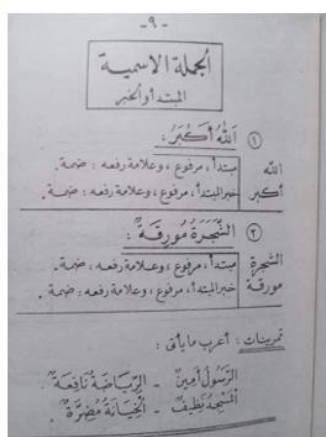 -٩-
الجملة الاسمية
المبتدأ والخبر
① اَللّٰهُ أَكْبَرُ :
الله | مبتدأ، مرفوع، وعلامة رفعه : ضمة.
أكبر | خبر المبتدأ، مرفوع، وعلامة رفعه : ضمة.
② الشَّجَرَةُ مُورِقَةٌ :
الشجرة | مبتدأ، مرفوع، وعلامة رفعه : ضمة.
مورقة | خبر المبتدأ، مرفوع، وعلامة رفعه : ضمة.
تمرينات : أعرب ما يأتى :
الرَّسُولُ أَمِينٌ - الرِّيَاضَةُ نَافِعَةٌ.
المَسْجِدُ نَظِيفٌ - الْخِيَانَةُ مُضِرَّةٌ.